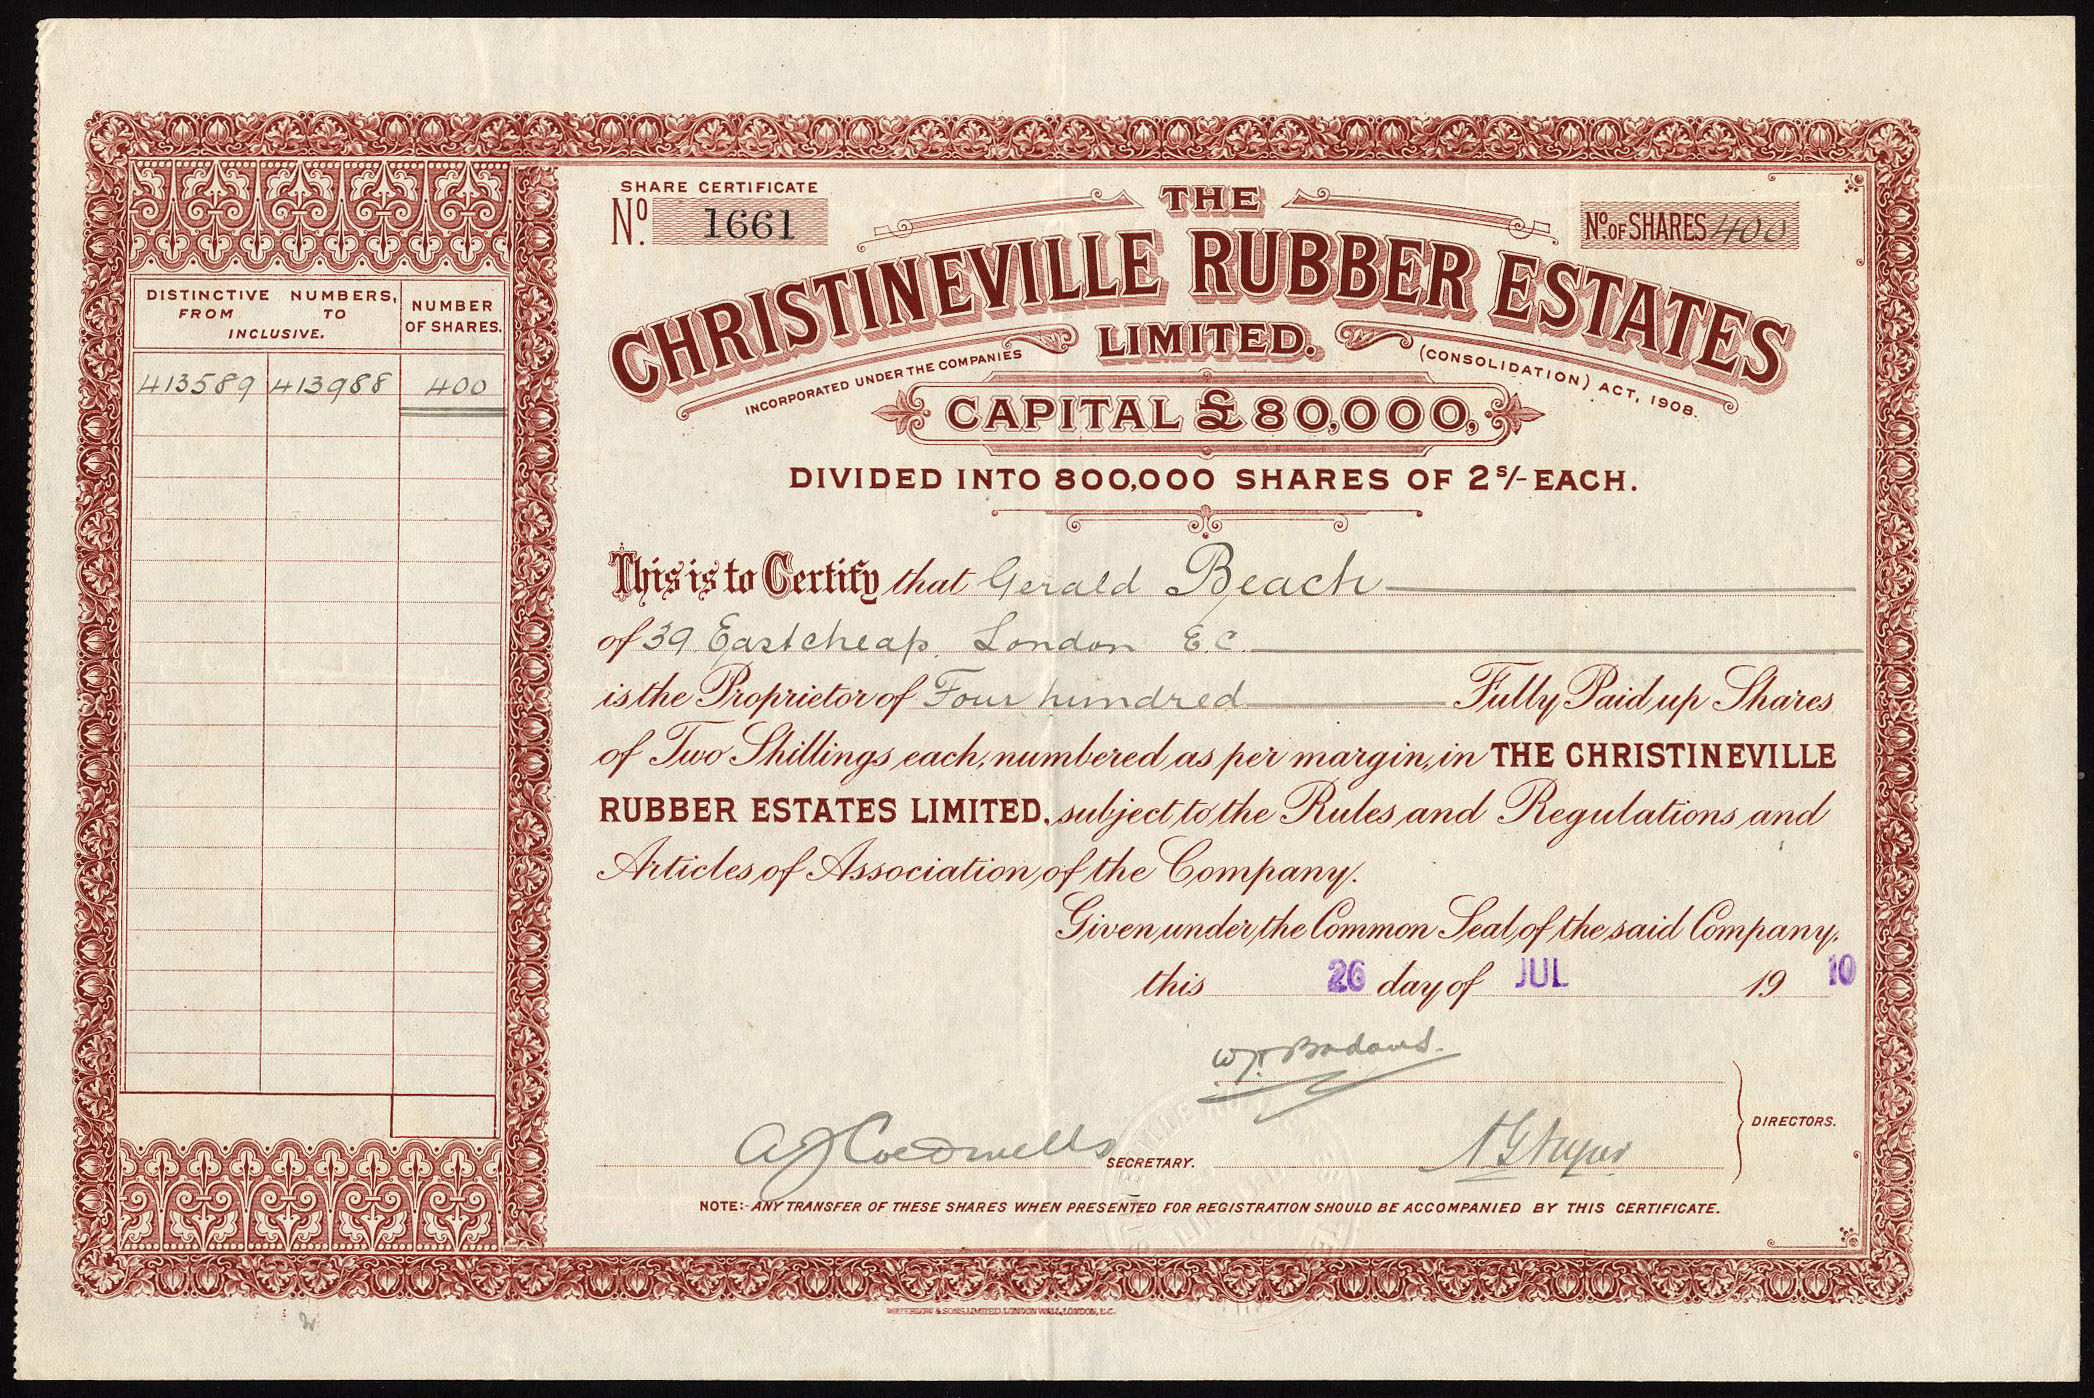 SHARE CERTIFICATE
No. 1661
No. OF SHARES 400
THE
CHRISTINEVILLE RUBBER ESTATES
LIMITED.
INCORPORATED UNDER THE COMPANIES (CONSOLIDATION) ACT, 1908.
CAPITAL £80,000,
DIVIDED INTO 800,000 SHARES OF 2s/- EACH.
DISTINCTIVE NUMBERS,
FROM TO
INCLUSIVE.
NUMBER
OF SHARES.
413589 413988 400
This is to Certify that Gerald Beach
of 39 Eastcheap, London E.C.
is the Proprietor of Four hundred Fully Paid up Shares
of Two Shillings each, numbered as per margin, in THE CHRISTINEVILLE
RUBBER ESTATES LIMITED, subject to the Rules and Regulations and
Articles of Association of the Company.
Given under the Common Seal of the said Company,
this 26 day of JUL 1910
DIRECTORS.
SECRETARY.
NOTE:- ANY TRANSFER OF THESE SHARES WHEN PRESENTED FOR REGISTRATION SHOULD BE ACCOMPANIED BY THIS CERTIFICATE.
WATERLOW & SONS, LIMITED, LONDON WALL, LONDON, E.C.